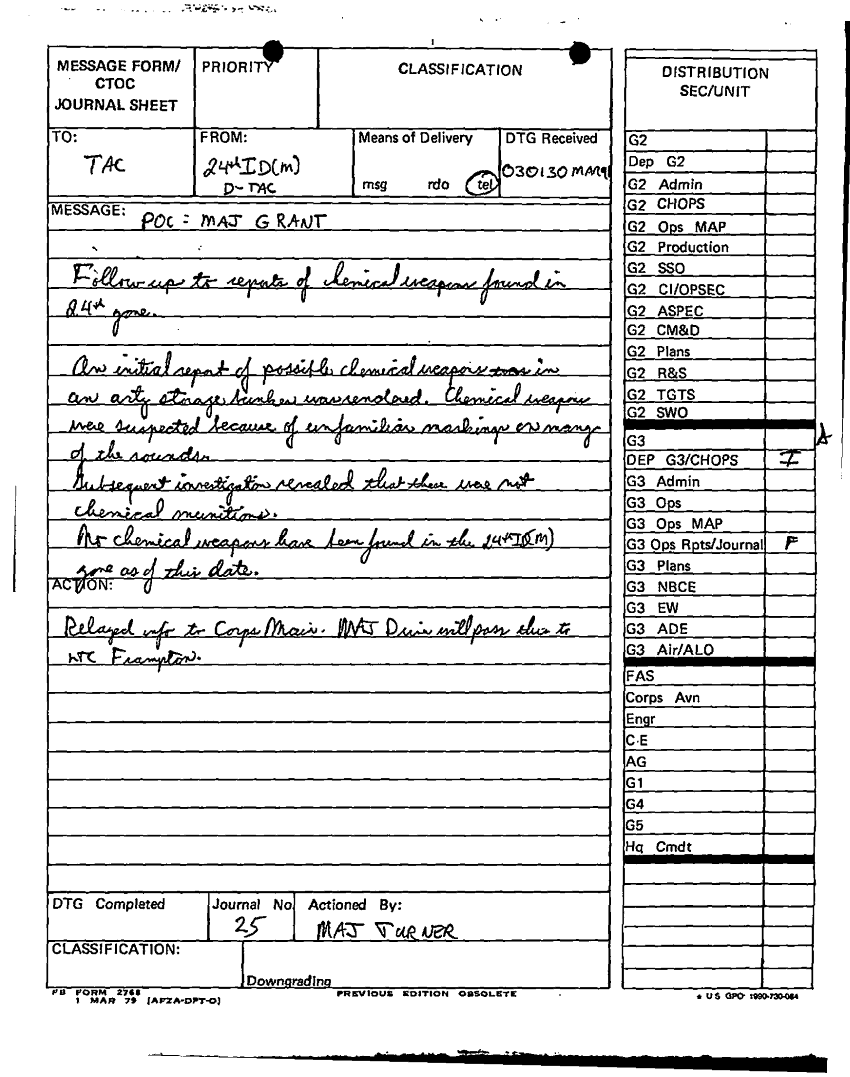 MESSAGE FORM/
CTOC
JOURNAL SHEET
PRIORITY
CLASSIFICATION
TO:
TAC
FROM:
24th ID(M)
D-TAC
Means of Delivery
msg rdo tel
DTG Received
030130 MAR91
MESSAGE:
POC = MAJ GRANT
Follow up to reports of chemical weapons found in
24th zone.
An initial report of possible chemical weapons was in
an arty storage bunker was rendered. Chemical weapons
were suspected because of unfamiliar markings on many
of the rounds.
Subsequent investigation revealed that these were not
chemical munitions.
No chemical weapons have been found in the 24th ID(M)
zone as of this date.
ACTION:
Relayed info to Corps Main. MAJ will pass this to
LTC Frampton.
DTG Completed
Journal No.
25
Actioned By:
MAJ TURNER
CLASSIFICATION:
Downgrading
FB FORM 2768
1 MAR 79 (AFZA-DPT-O)
PREVIOUS EDITION OBSOLETE
DISTRIBUTION
SEC/UNIT
G2
Dep G2
G2 Admin
G2 CHOPS
G2 Ops MAP
G2 Production
G2 SSO
G2 CI/OPSEC
G2 ASPEC
G2 CM&D
G2 Plans
G2 R&S
G2 TGTS
G2 SWO
G3
DEP G3/CHOPS I
G3 Admin
G3 Ops
G3 Ops MAP
G3 Ops Rpts/Journal F
G3 Plans
G3 NBCE
G3 EW
G3 ADE
G3 Air/ALO
FAS
Corps Avn
Engr
C-E
AG
G1
G4
G5
Hq Cmdt
* US GPO 1990-730-064